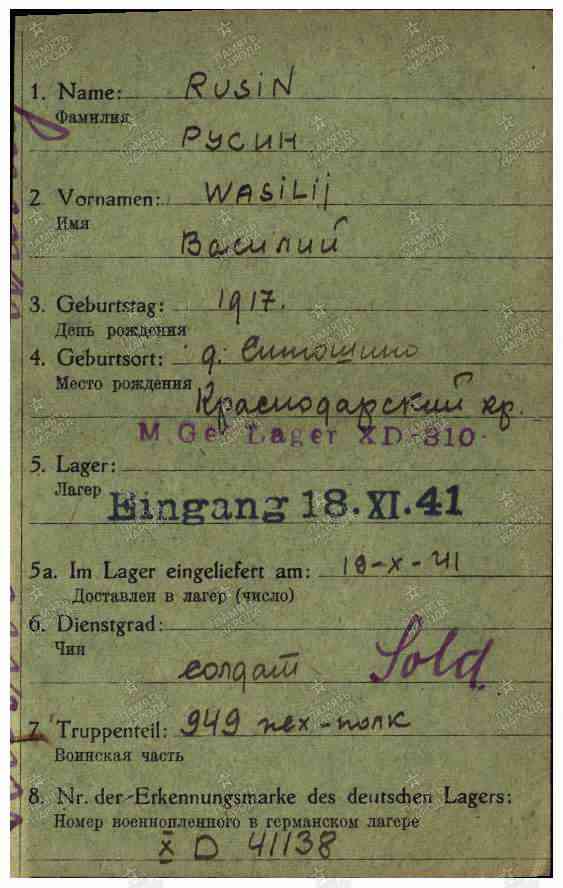 1. Name: RUSIN
Фамилия
РУСИН
2 Vornamen: WASILIJ
Имя
Василий
3. Geburtstag: 1917.
День рождения
4. Geburtsort: д. Ситошино
Место рождения
Краснодарский кр.
M. Gef Lager XD-310
5. Lager:
Лагер
Eingang 18.XI.41
5a. Im Lager eingeliefert am: 19-X-41
Доставлен в лагер (число)
6. Dienstgrad:
Чин
солдат Sold.
7. Truppenteil: 949 пех-полк
Воинская часть
8. Nr. der Erkennungsmarke des deutschen Lagers:
Номер военнопленного в германском лагере
X D 41138
ПАМЯТЬ НАРОДА